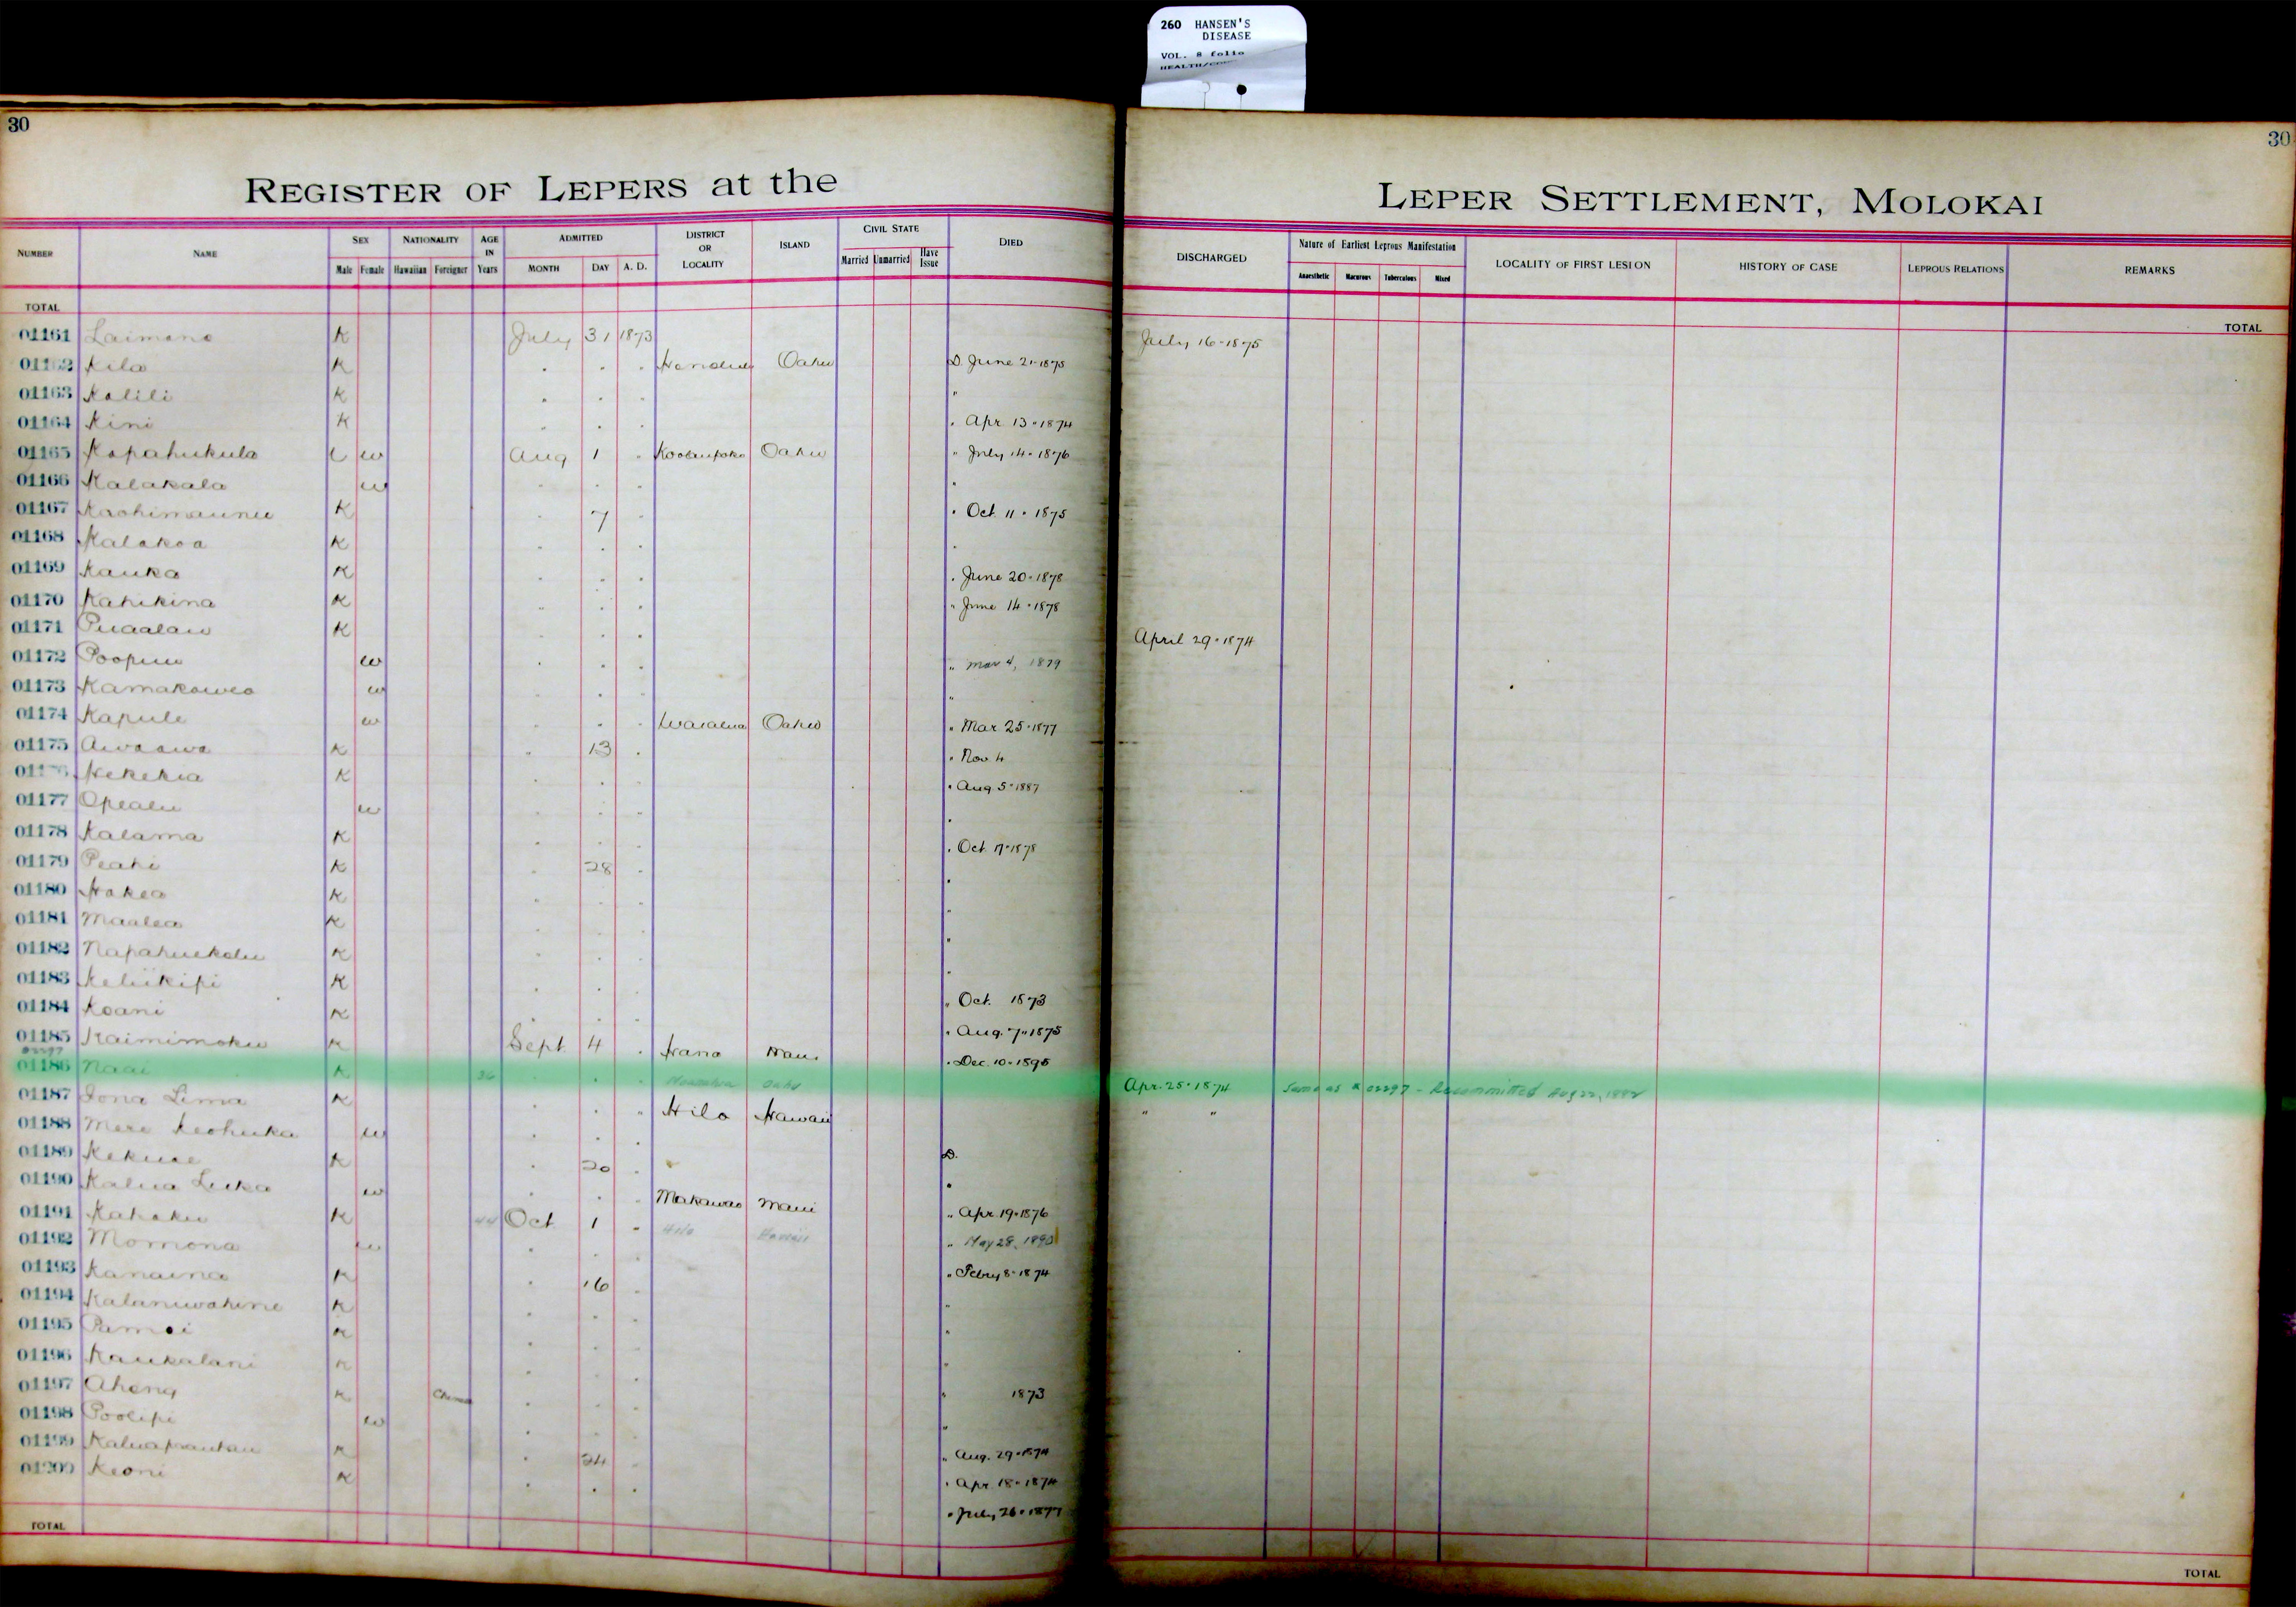 260 HANSEN'S
DISEASE
VOL. 8 folio
30
30
REGISTER OF LEPERS at the
LEPER SETTLEMENT, MOLOKAI
NUMBER NAME SEX Male Female NATIONALITY Hawaiian Foreigner AGE IN Years ADMITTED MONTH DAY A. D. DISTRICT OR LOCALITY ISLAND CIVIL STATE Married Unmarried Have Issue DIED
DISCHARGED Nature of Earliest Leprous Manifestation Anaesthetic Macurous Tuberculous Mixed LOCALITY OF FIRST LESION HISTORY OF CASE LEPROUS RELATIONS REMARKS
TOTAL
TOTAL
01161 Laimana K July 31 1873 July 16-1875
01162 Kila K " " " Honolulu Oahu D. June 21-1875
01163 Kalili K " " " "
01164 Kini K " " " " Apr. 13-1874
01165 Kapahukula w Aug 1 " Koolaupoko Oahu " July 14-1876
01166 Kalakala w " " " "
01167 K " 7 " " Oct. 11-1875
01168 Kalakoa K " " " "
01169 Kauka K " " " " June 20-1878
01170 Kahikina K " " " " June 14-1878
01171 Puaalau K " " " April 29-1874
01172 w " " " " Mar 4, 1879
01173 w " " " "
01174 Kapule w " " " Waialua Oahu " Mar. 25-1877
01175 Awaawa K " 13 " " Nov. 4
Kekekia K " " " " Aug 5-1887
01177 Opealu w " " " "
01178 Kalama K " " " " Oct. 17-1878
01179 Peahi K " 28 " "
01180 Hakea K " " " "
01181 Maalea K " " " "
01182 Napahuekolu K " " " "
01183 Keliikipi K " " " " Oct. 1873
01184 Koani K " " " " Aug. 7-1875
01185 Kaimimoku K Sept 4 " Hana Maui " Dec. 10-1895
01186 Naai K 36 " " " Oahu Apr. 25-1874 Same as # 02297 - Recommitted Aug 22, 1882
01187 Iona Lima K " " " Hilo Hawaii " "
01188 Mere Keohuka w " " " D.
01189 Kekuae K " 20 " "
01190 Kalua Luka w " " " Makawao Maui " Apr. 19-1876
01191 Kahaku K 44 Oct 1 " Hilo Hawaii " May 28, 1890
01192 Momona w " " " " Febry 8-1874
01193 Kanaina K " 16 " "
01194 Kalaniwahine K " " " "
01195 K " " " "
01196 Kaukalani K " " " " 1873
01197 Ahang K " " " "
01198 Poolipi w " " " " Aug. 29-1874
01199 K " 24 " " Apr. 18-1874
01200 Keoni K " " " " July 26-1877
TOTAL
TOTAL